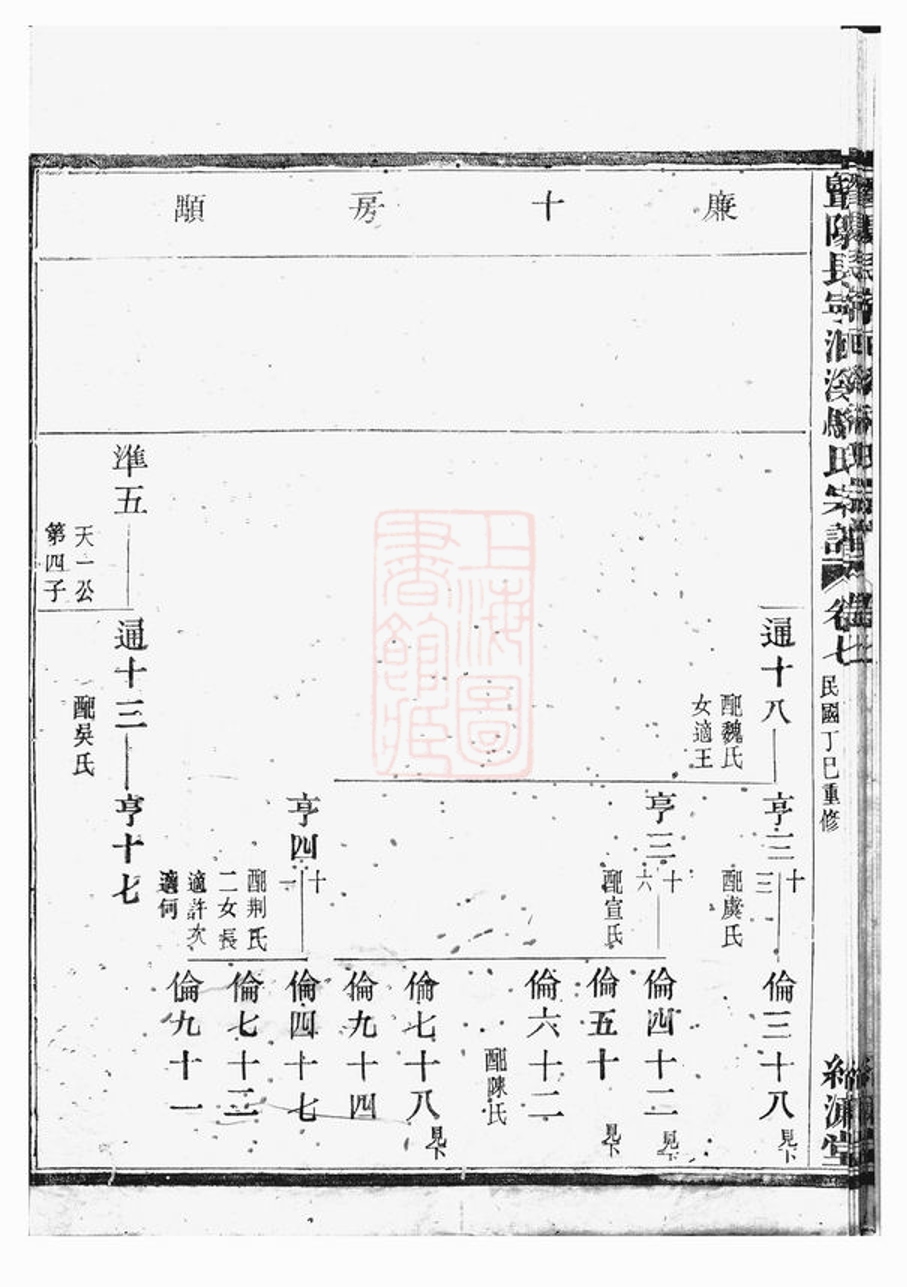 廉十房顒
通十八
配魏氏
女適王
亨三
十三
配虞氏
倫三十八
見下
亨三
十六
配宣氏
倫四十二
見下
倫五十
見下
倫六十二
配陳氏
倫七十八
見下
倫九十四
亨四
十一
配荆氏
二女長
適許次
適何
倫四十七
倫七十三
倫九十一
準五
天一公
第四子
通十三
配吳氏
亨十七
氏宗譜
卷七
民國丁巳重修